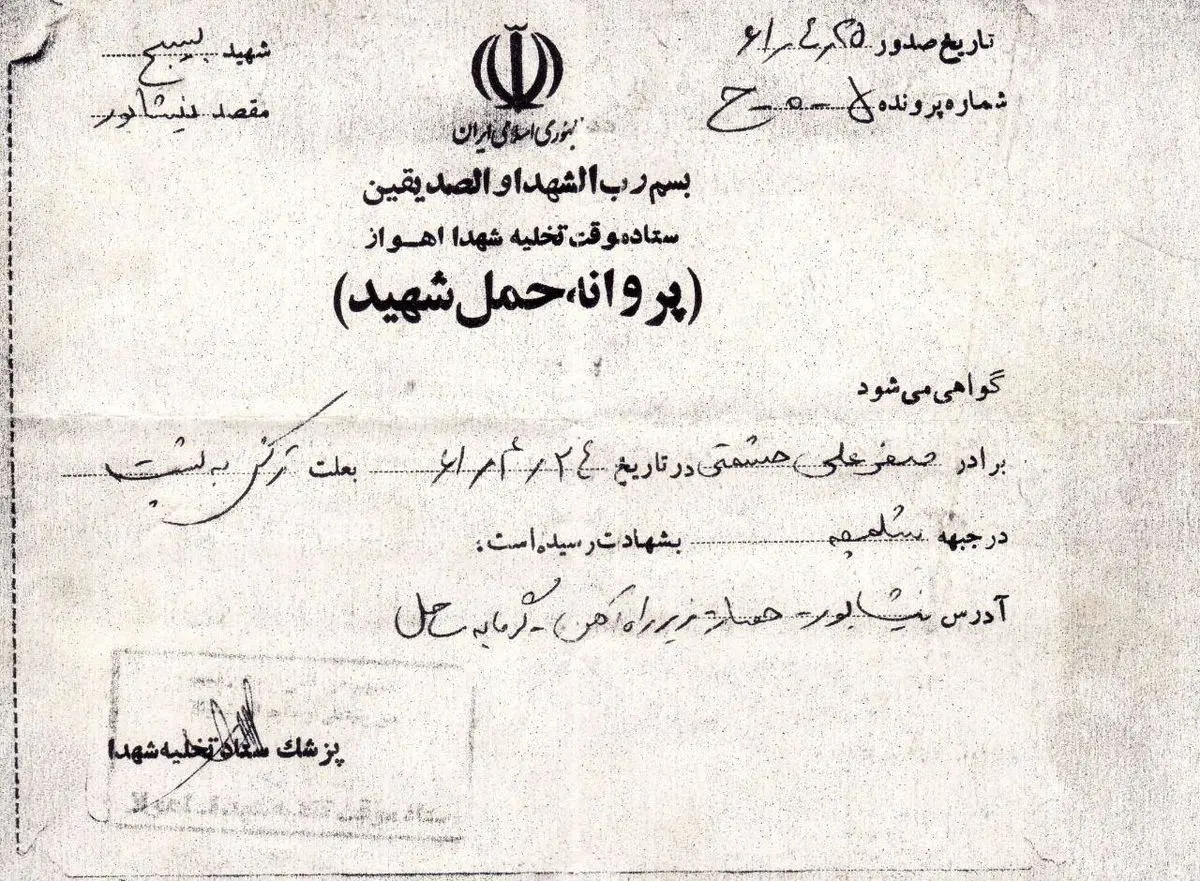 تاریخ صدور ۲۵ر۴ر۶۱
شماره پرونده ۵-ح
شهید بسیج
مقصد نیشابور
جمهوری اسلامی ایران
بسم رب الشهدا و الصدیقین
ستاد موقت تخلیه شهدا اهواز
(پروانه حمل شهید)
گواهی می‌شود
برادر صفرعلی حشمتی در تاریخ ۲۴ر۴ر۶۱ بعلت ترکش به پشت
در جبهه شلمچه بشهادت رسیده است.
آدرس نیشابور- حصار- زیر راه آهن- گرمابه
پزشك ستاد تخلیه شهدا